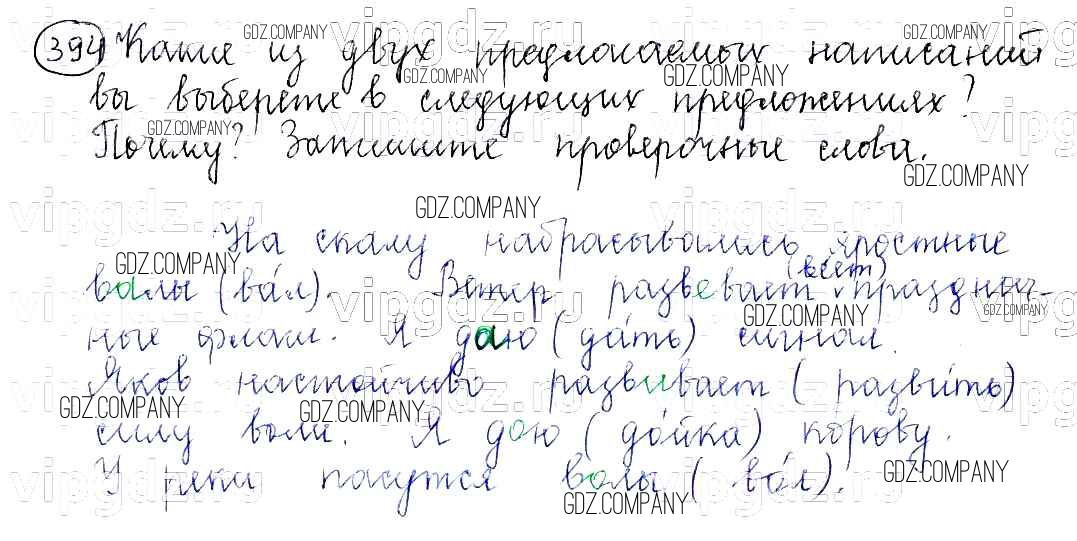 394 Какие из двух предлагаемых написаний
вы выберете в следующих предложениях?
Почему? Запишите проверочные слова.
На скалу набрасывались яростные
валы (ва́л). Ветер развевает (ве́ет) празднич-
ные флаги. Я даю (да́ть) сигнал.
Яков настойчиво развивает (разви́ть)
силу воли. Я дою (до́йка) корову.
У реки пасутся волы (во́л).
vipgdz.ru
GDZ.COMPANY